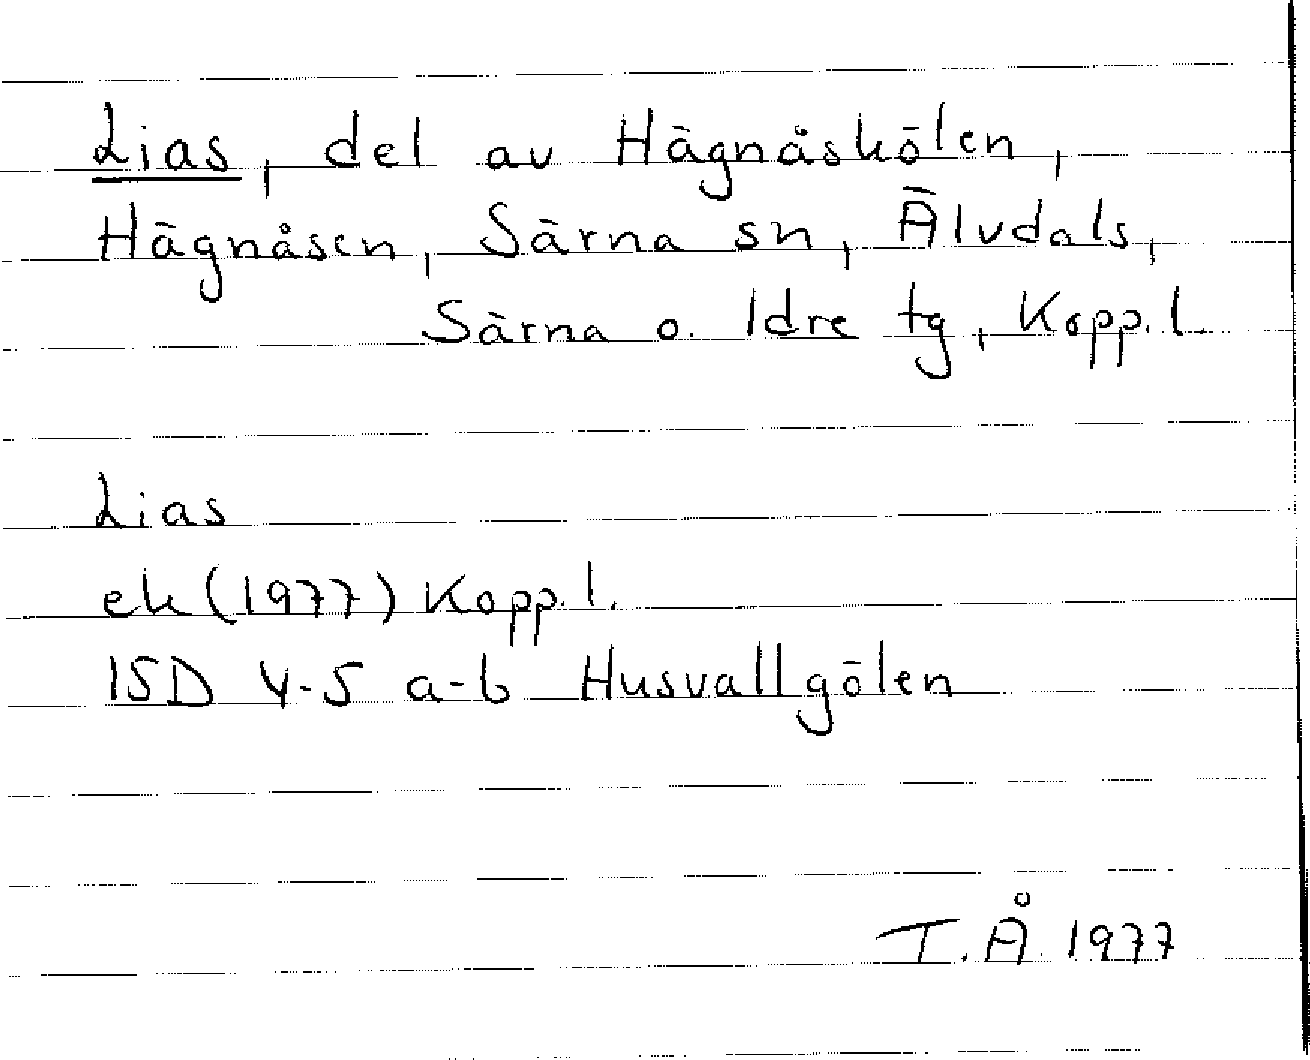 Lias, del av Hägnåskölen,
Hägnåsen, Särna sn, Älvdals,
Särna o. Idre tg, Kopp. l.
Lias
ek (1977) Kopp. l.
15D 4-5 a-b Husvallgölen
T. Å. 1977